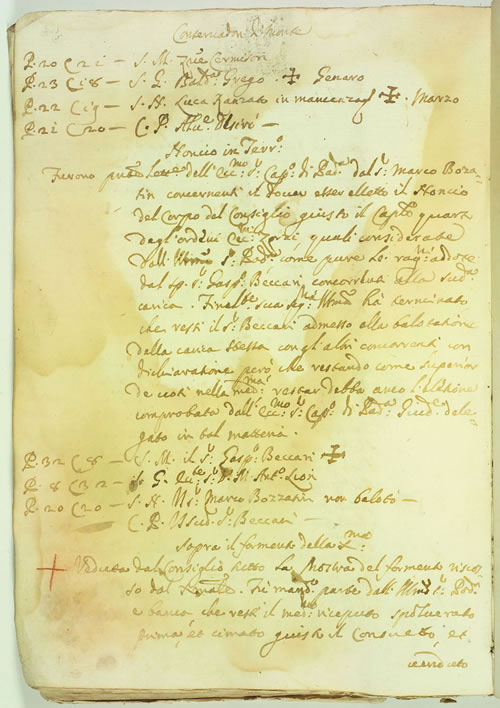 Conservadori di Monte
P. 20 C 21 — S. M. Zne Cermison
P. 23 C 18 — S. G. Balda. Grego ✠ Genaro
P. 22 C 19 — S. H. Luca Ranzato in mancanza ✠ Marzo
P. 21 C 20 — C. P. Alve. Usirò —
Noncio in Terr.o
Furono pnte Lettere dell' Ecc.mo S.r Cap.o di Pad.a dal S.r Marco Boza-
tin concernenti il dover esser elletto il Noncio
del Corpo del Consiglio giusto il Capto quarto
degl'ordini Ecc.mi Zorzi, quali considerate
dall' Illmo S.r Pod.a come pure le rag.ni addote
dal Sp. S.r Gasp.o Beccari, concorrenti alla sud.a
carica. Finalte. sua Sig.ria Illma hà terminato
che resti il S.r Beccari admesso alla balotatione
della carica stessa con gl'altri concorrenti con
dichiaratione però che restando come superior
de voti nella med.ma restar debba anco l'elletione
comprobata dall' Ecc.mo S.r Cap.o di Pad.a Giud.e dele-
gato in tal matteria.
P. 32 C 8 — S. M. il S.r Gasp.o Beccari ✠
P. 8 C 32 — S. G. S.r Ant.o Lion
P. 20 C 20 — S. H. S.r Marco Bozzatin non baloto —
C. P. S.r Beccari —
Sopra il formento della
Veduta dal Consiglio tutto la Mostra del formento risco-
so dal . Fù mand.o parte dall' Illmo S.r Pod.a
e Banca che resti il med.o riceputo spolverato
prima, et crivato giusto il Consueto, et